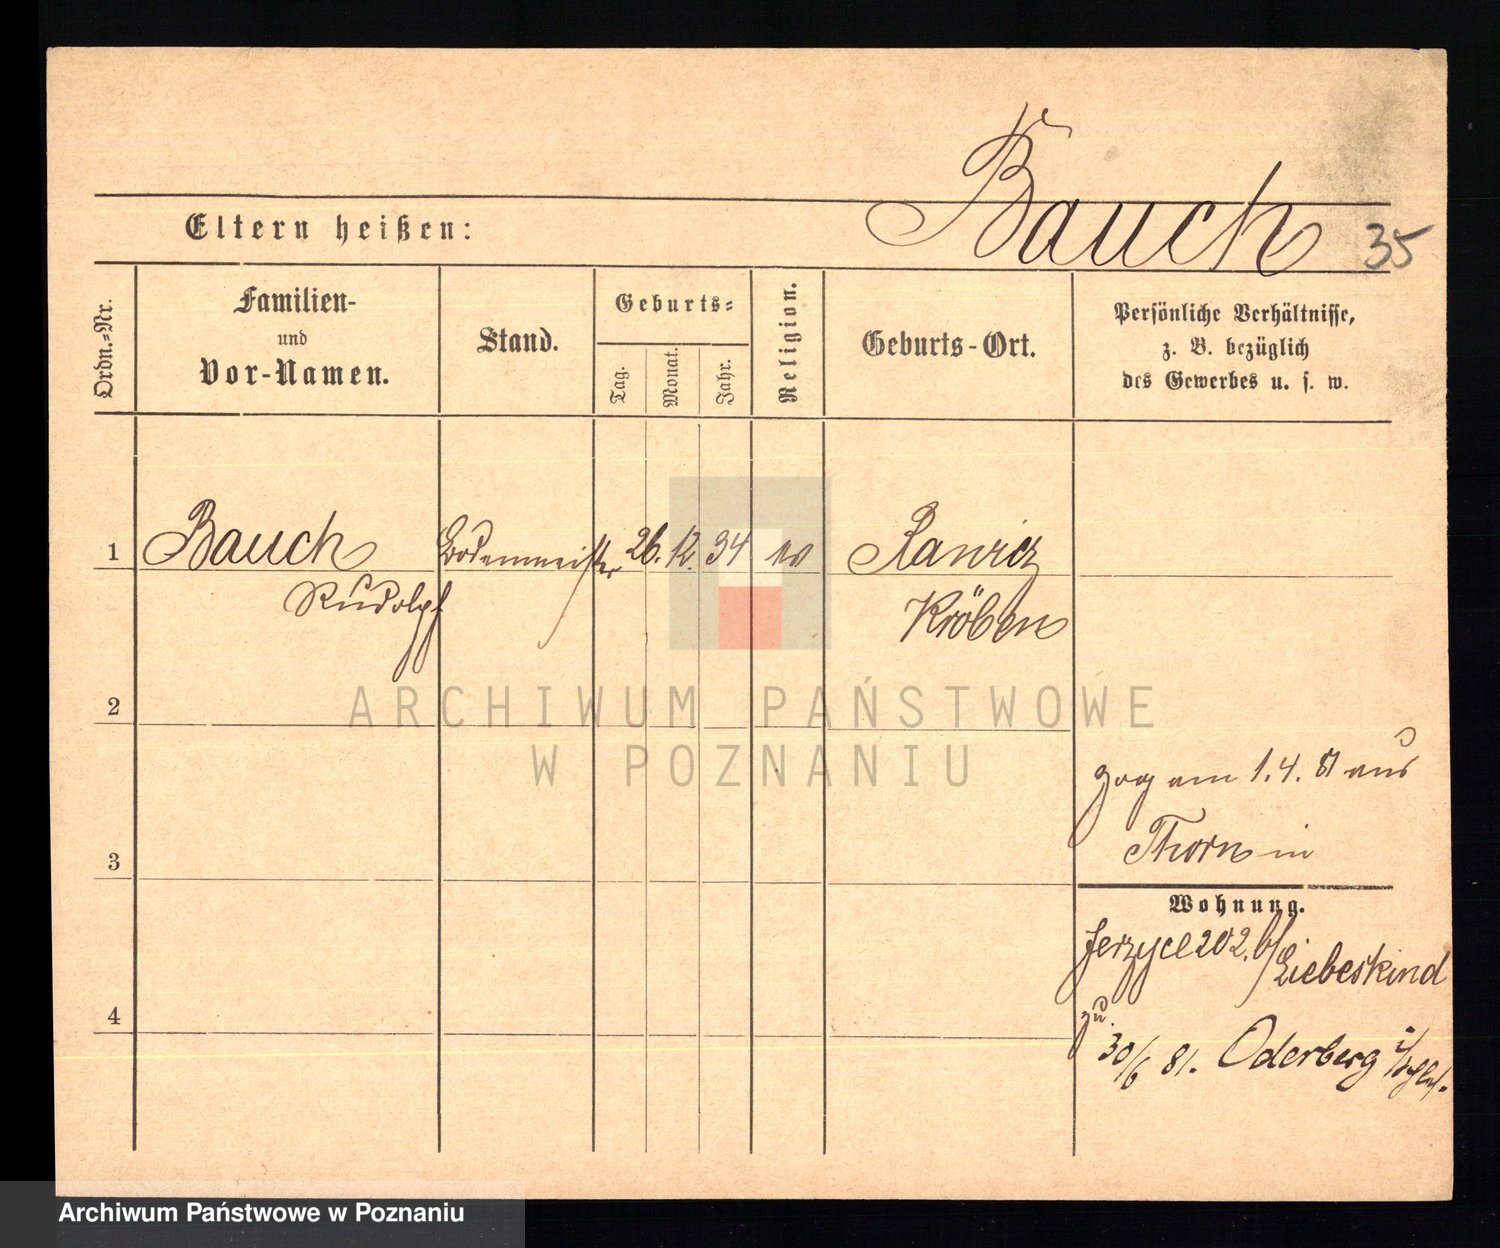 Bauch
35
Eltern heißen:
Ordn.-Nr.
Familien-
und
Vor-Namen.
Stand.
Geburts-
Tag.
Monat.
Jahr.
Religion.
Geburts-Ort.
Persönliche Verhältnisse,
z. B. bezüglich
des Gewerbes u. s. w.
1 Bauch Bodenmeister 26. 12. 34 Rawicz
Rudolph Kröben
ARCHIWUM PAŃSTWOWE
W POZNANIU
2
zog am 1.4.81 aus
Thorn in
3
Wohnung.
Jerzyce 202. b/ Liebeskind
4
zu
30/6 81. Oderberg
Archiwum Państwowe w Poznaniu